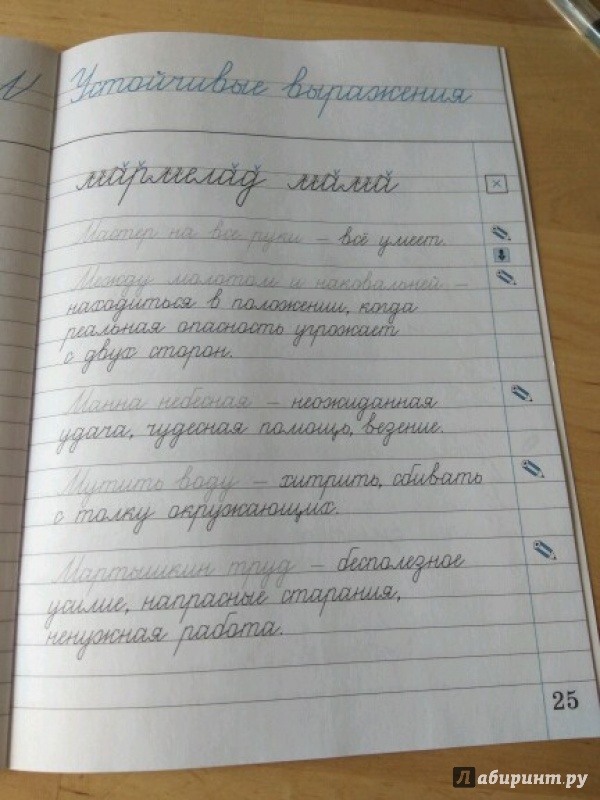 Устойчивые выражения
мармелад мама
Мастер на все руки – всё умеет.
Между молотом и наковальней –
находиться в положении, когда
реальная опасность угрожает
с двух сторон.
Манна небесная – неожиданная
удача, чудесная помощь, везение.
Мутить воду – хитрить, сбивать
с толку окружающих.
Мартышкин труд – бесполезное
усилие, напрасные старания,
ненужная работа.
25
Лабиринт.ру